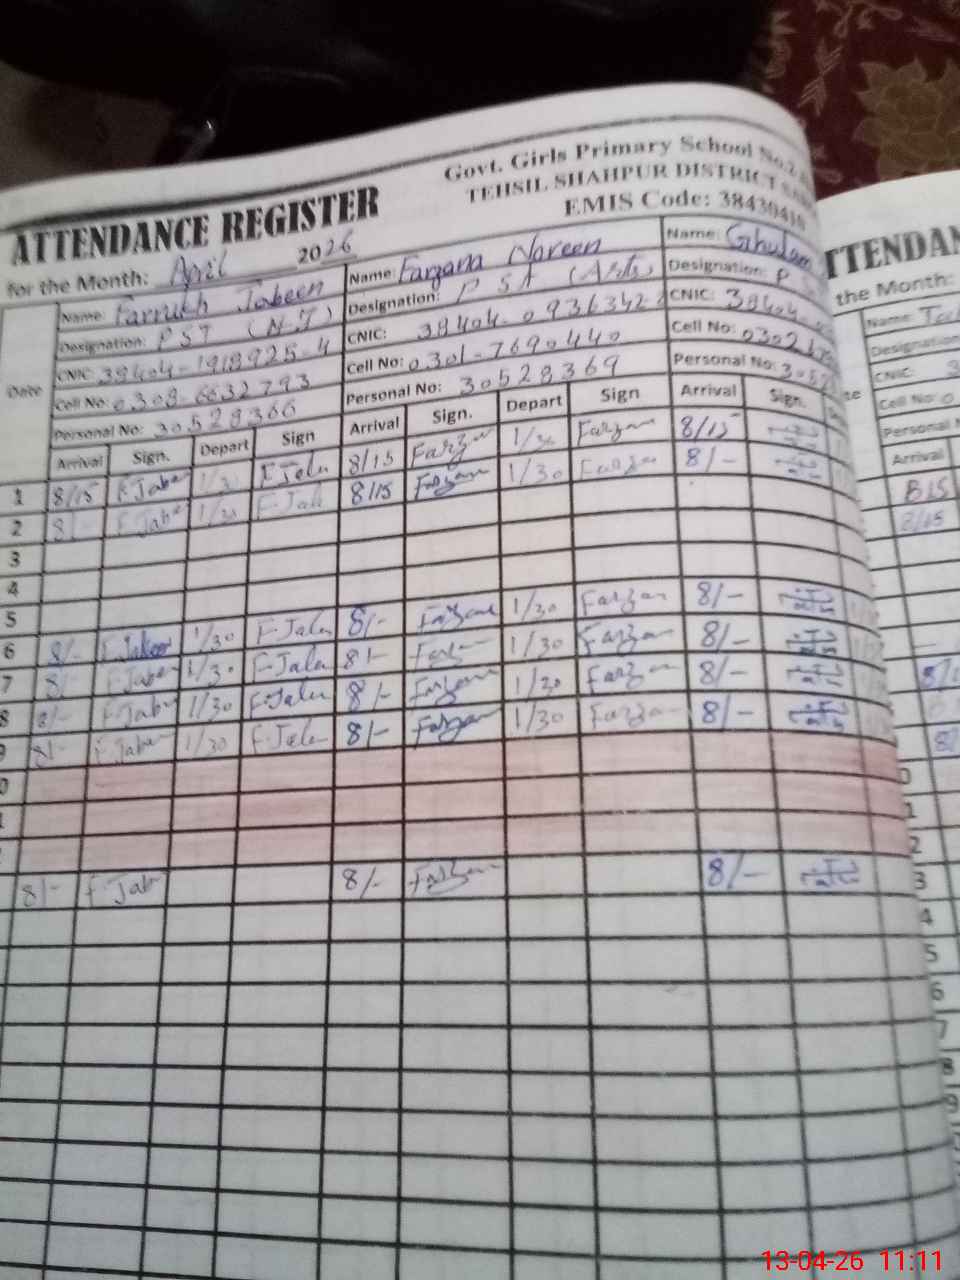 Govt. Girls Primary School No.2
TEHSIL SHAHPUR DISTRICT
EMIS Code: 38430410
ATTENDANCE REGISTER
for the Month: April 2026
Name: Farrukh Jabeen
Designation: PST (N.T)
CNIC: 38404-1918925-4
Cell No: 0308-6632793
Personal No: 30528366
Name: Farzana Noreen
Designation: PST (Arts)
CNIC: 38404-0936342
Cell No: 0301-7690440
Personal No: 30528369
Name: Ghulam
Designation: P
CNIC: 38404
Cell No: 0302
Personal No: 3052
Date
Arrival Sign. Depart Sign Arrival Sign. Depart Sign Arrival Sign.
1 8/15 F.Jabe 1/3 F.Jale 8/15 Farzan 1/30 Farzan 8/15
2 8/- F.Jabe 1/30 F.Jale 8/15 Farzan 1/30 Farzan 8/-
3
4
5
6 8/- F.Jabeen 1/30 F-Jalen 8/- Farzan 1/30 Farzan 8/-
7 8/- F.Jabe 1/30 F-Jalen 8/- Farzan 1/30 Farzan 8/-
8 8/- F.Jabe 1/30 F-Jalen 8/- Farzan 1/30 Farzan 8/-
9 8/- F.Jabe 1/30 F-Jale 8/- Farzan 1/30 Farzan 8/-
0
1
2
3 8/- F.Jab 8/- Farzan 8/-
4
5
6
7
8
9
TTENDAN
the Month:
Name:
Designation
CNIC: 3
Cell No: 0
Personal N
Arrival
815
8/15
13-04-26 11:11